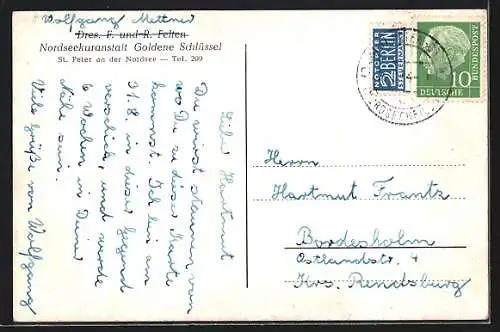 Wolfgang Mettner
Dres. F. und R. Felten
Nordseekuranstalt Goldene Schlüssel
St. Peter an der Nordsee — Tel. 209
Lieber Hartmut
Du wirst staunen von
wo Du zu dieser Karte
kommst. Ich bin am
31.8. in diese Gegend
verschickt, und werde
6 Wochen in Deiner
Nähe sein.
Viele Grüße von Wolfgang
NOTOPFER
2 BERLIN
STEUERMARKE
DEUTSCHE
BUNDESPOST
10
Herrn
Hartmut Frantz
Bordesholm
Ostlandstr. 4
Krs. Rendsburg